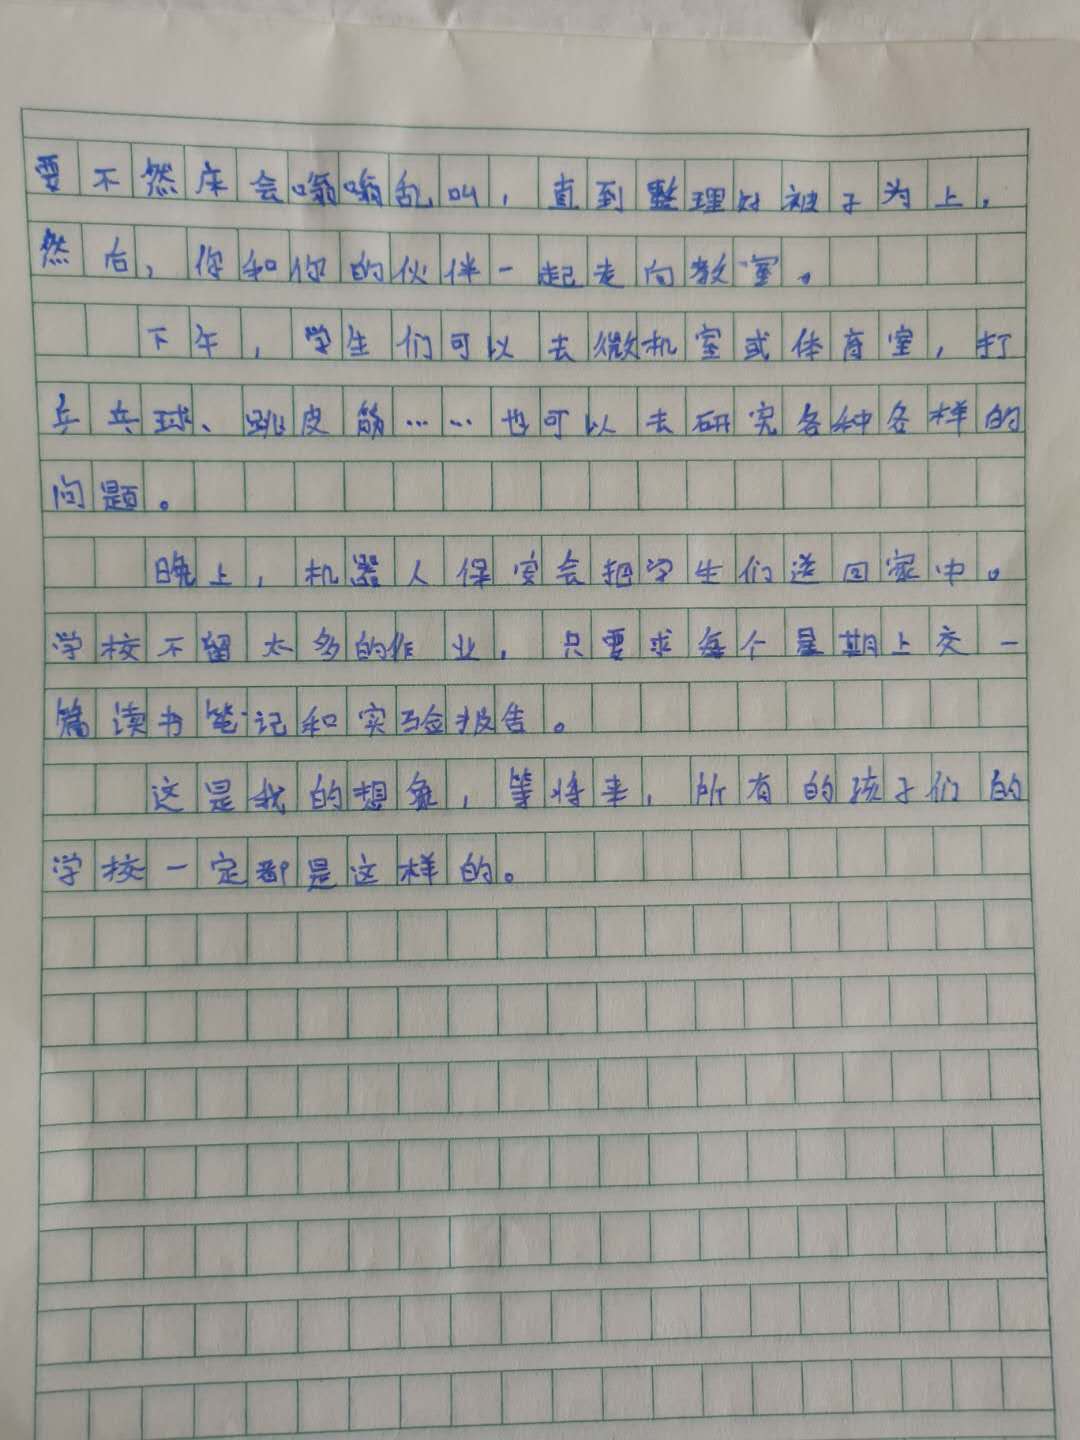 要不然床会嗡嗡乱叫，直到整理好被子为上，
然后，你和你的伙伴一起走向教室。
下午，学生们可以去微机室或体育室，打
乒乓球、跳皮筋……也可以去研究各种各样的
问题。
晚上，机器人保安会把学生们送回家中。
学校不留太多的作业，只要求每个星期上交一
篇读书笔记和实验报告。
这是我的想象，等将来，所有的孩子们的
学校一定都是这样的。